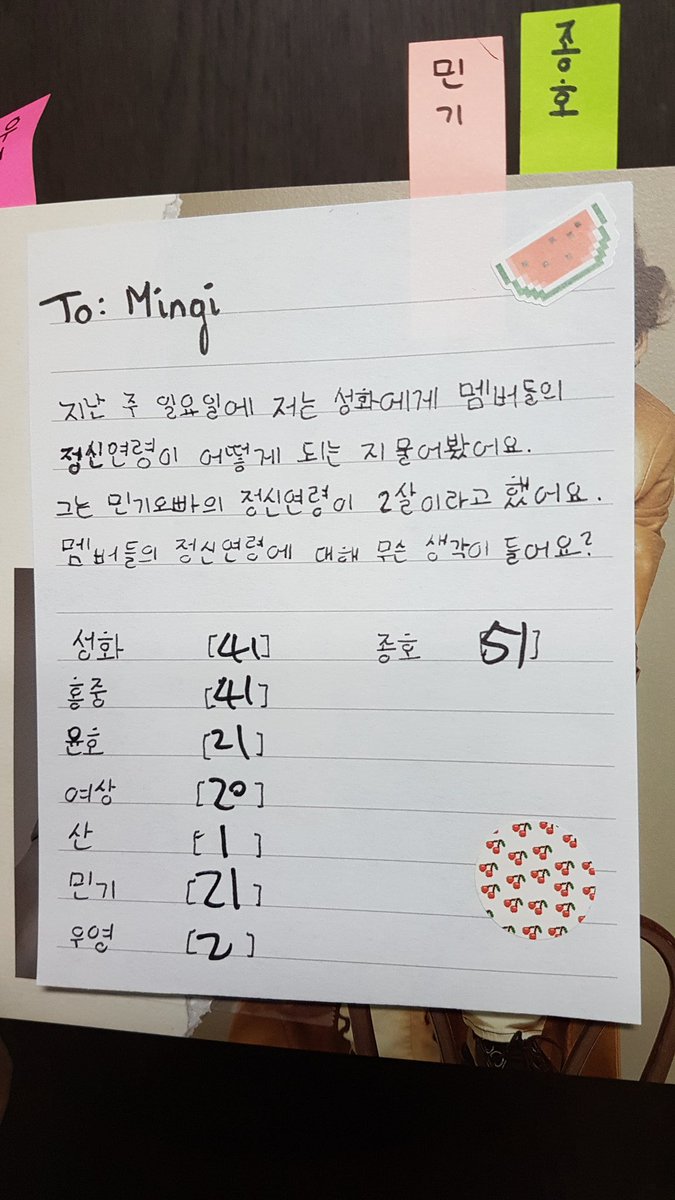 민기
종호
To: Mingi
지난 주 일요일에 저는 성화에게 멤버들의
정신연령이 어떻게 되는 지 물어봤어요.
그는 민기오빠의 정신연령이 2살이라고 했어요.
멤버들의 정신연령에 대해 무슨 생각이 들어요?
성화 [41] 종호 [51]
홍중 [41]
윤호 [21]
여상 [20]
산 [1]
민기 [21]
우영 [2]